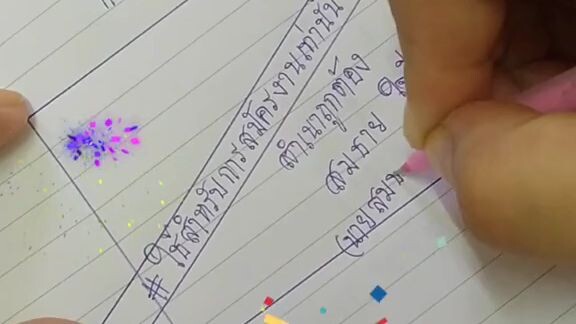 # ใช้สำหรับการสมัครงานเท่านั้น
สำเนาถูกต้อง
สมชาย
(นายสมช